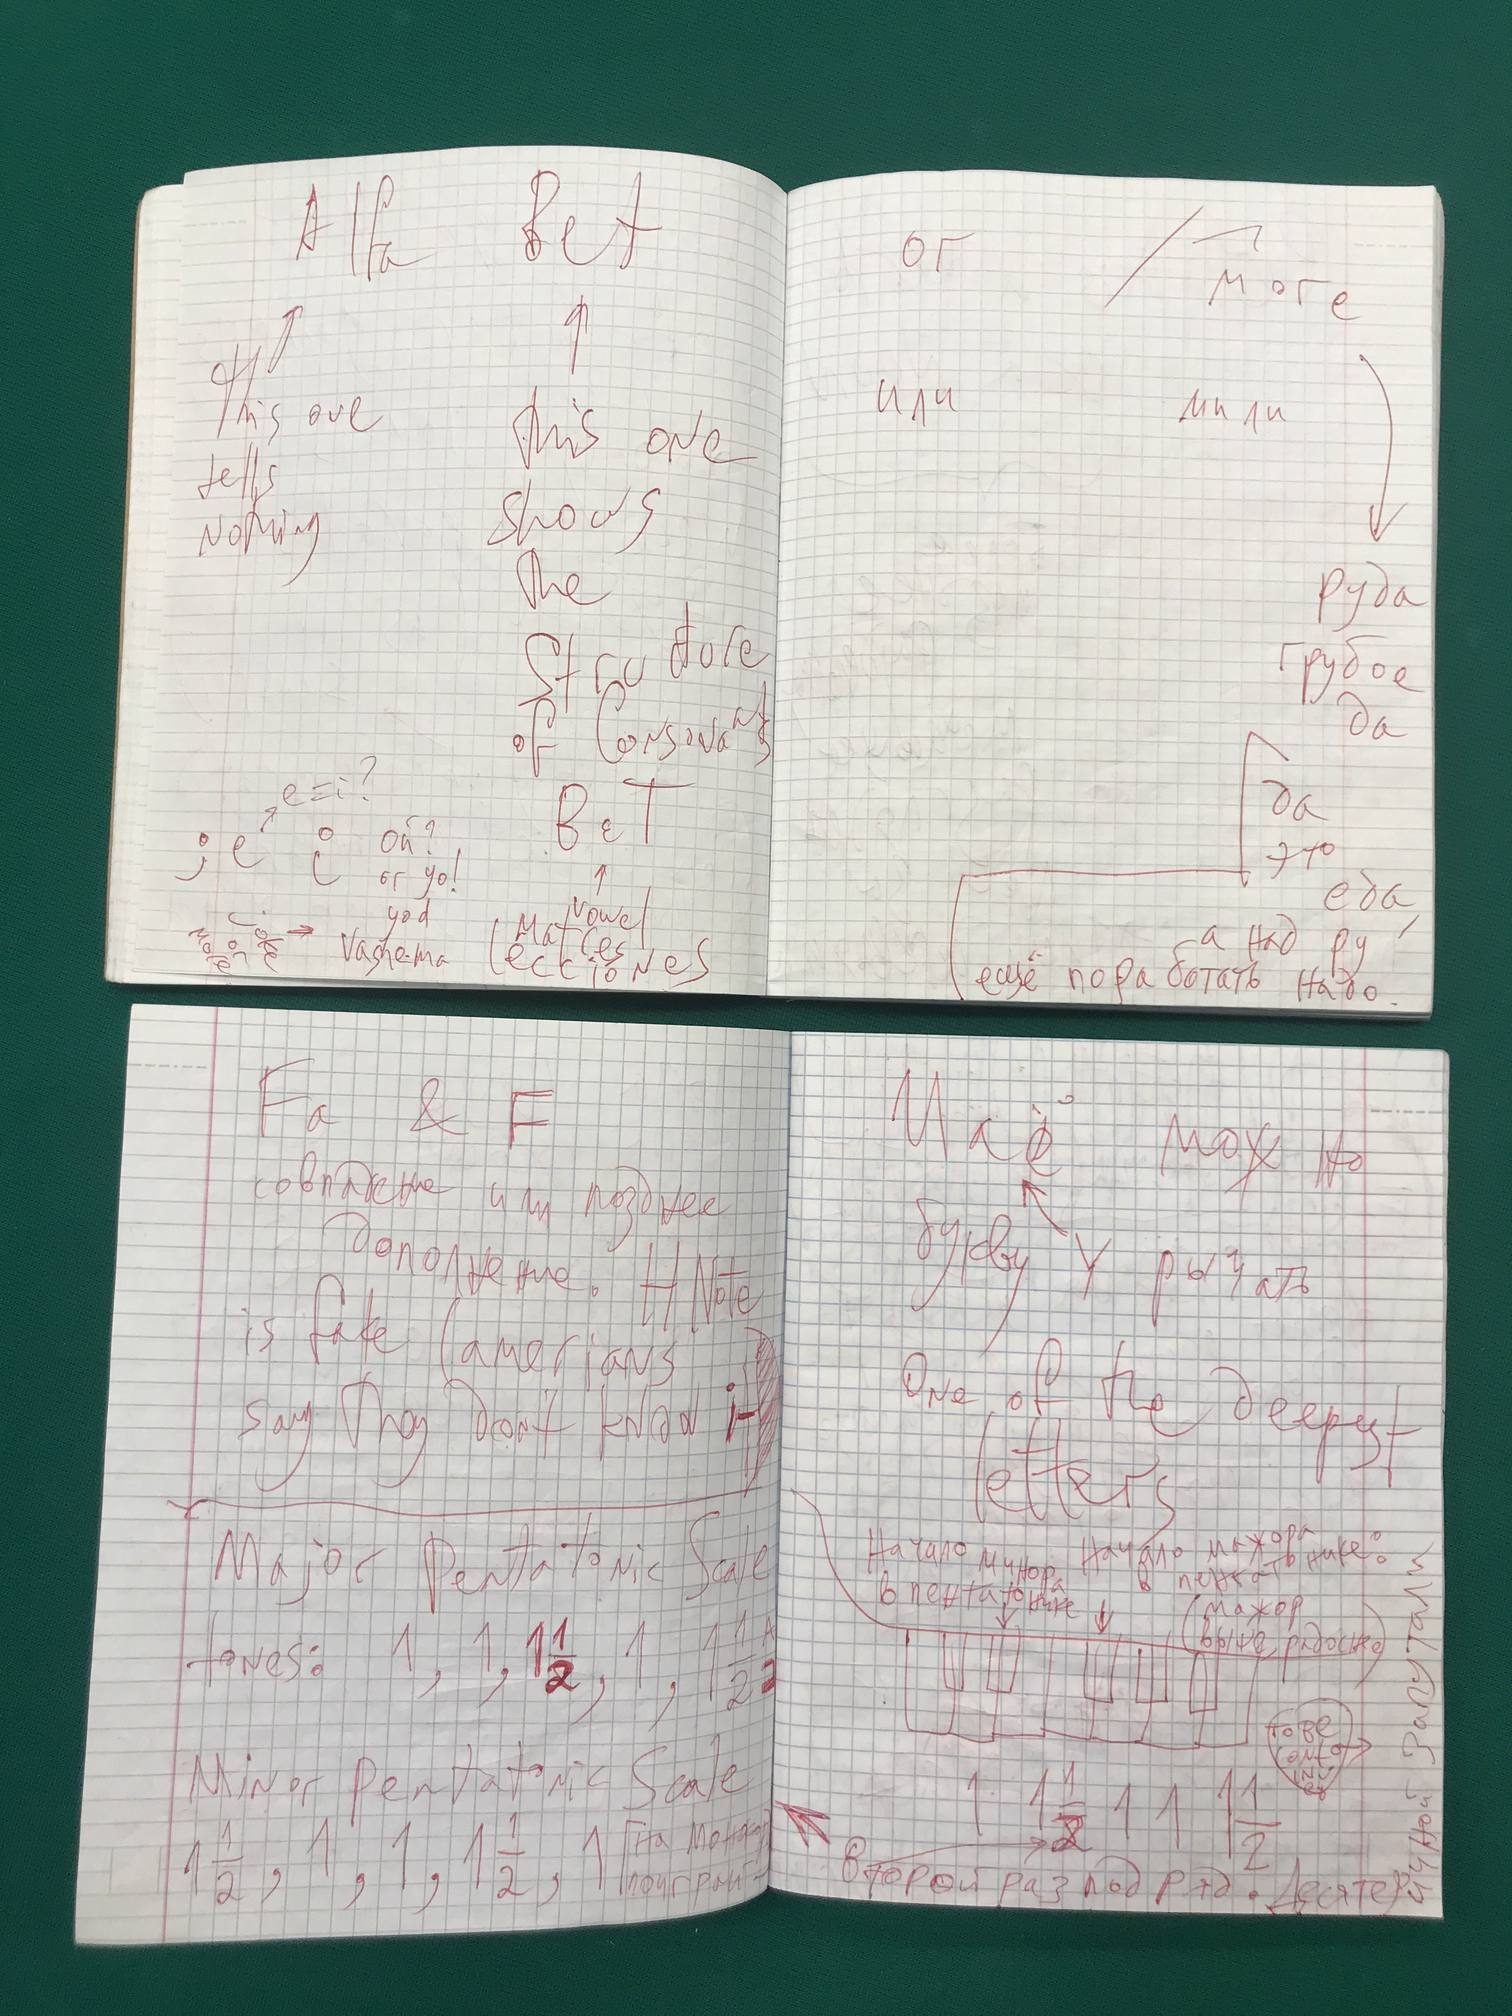 Alfa Bet
This one
tells
Nothing
this one
shows
the
Structure
of Consonants
BeT
vowel
Matres
lecktiones
e=i?
; e i ой?
or yo!
yod
Vashema
joke
or
ог / моге
или мили
руда
грубое
да
да
это
еда,
а над ру
ещё поработать надо.
Fa & F
совпадение или позднее
дополнение. H Note
is fake (amerians
say they dont know it)
Major Pentatonic Scale
tones: 1, 1, 1 1/2, 1, 1 1/2
Minor Pentatonic Scale
1 1/2, 1, 1, 1 1/2, 1
можно
букву У рычать
One of the deepest
letters
Начало минора
в пентатонике
Начало мажора
в пентатонике:
(мажор
выше, радостно)
1 1 1/2 1 1 1 1/2
Второй раз подряд. Десятеричной запутали